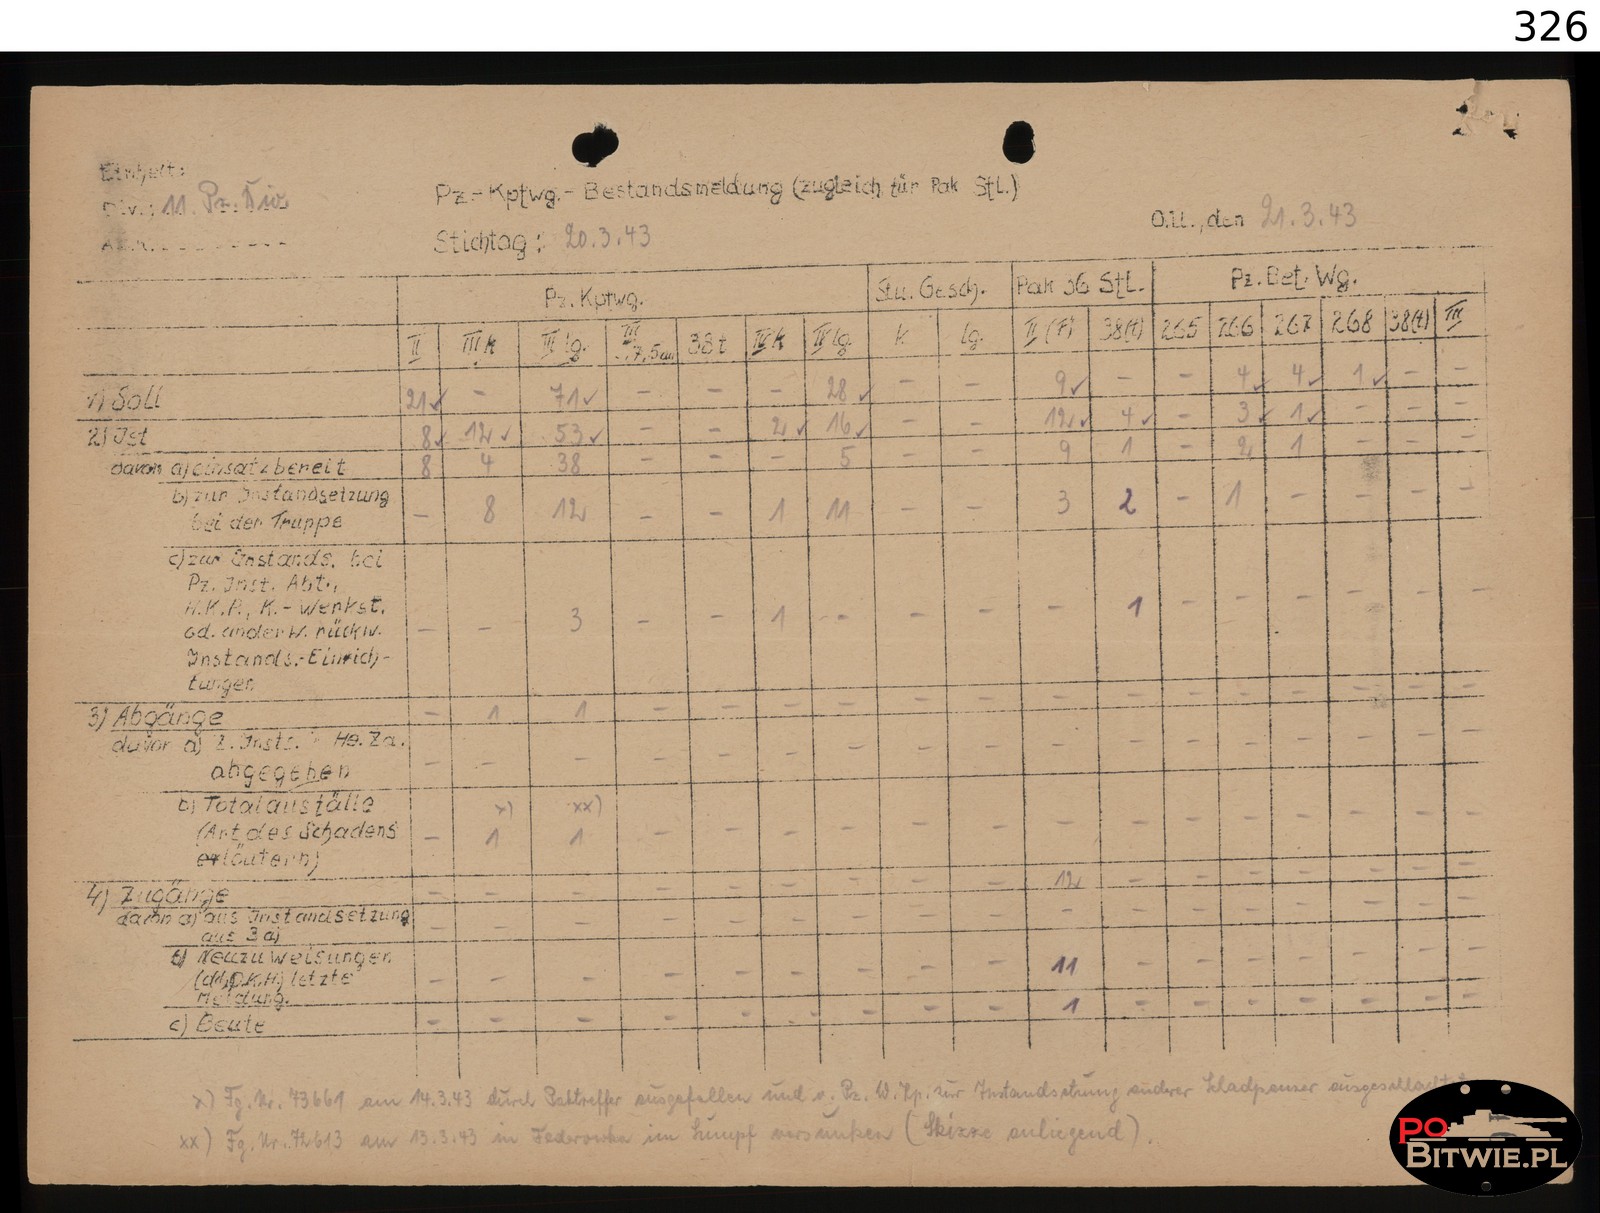 326
Einheit:
Div.: 11. Pz. Div.
Pz.-Kpfwg.-Bestandsmeldung (zugleich für Pak Sfl.)
O.U., den 21.3.43
Stichtag: 20.3.43
Pz. Kpfwg. Stu. Gesch. Pak auf Sfl. Pz. Bef. Wg.
II III k III lg. III 7,5 cm 38 t IV k IV lg. k lg. II (F) 38(t) 265 266 267 268 38(t) III
1) Soll 21✓ - 71✓ - - - 28✓ - - 9✓ - - 4✓ 4✓ 1✓ - -
2) Ist 8✓ 12✓ 53✓ - - 2✓ 16✓ - - 12✓ 4✓ - 3✓ 1✓ - - -
davon a) einsatzbereit 8 4 38 - - - 5 - - 9 1 - 2 1 - - -
b) zur Instandsetzung
bei der Truppe - 8 12 - - 1 11 - - 3 2 - 1 - - - -
c) zur Instands. bei
Pz. Inst. Abt.,
H.K.P., K.-Werkst.
od. anderw. rückw. - - 3 - - 1 - - - - 1 - - - - - -
Instands.-Einrich-
tungen
3) Abgänge - 1 1 - - - - - - - - - - - - - -
davon a) z. Insts. He. Za.
abgegeben - - - - - - - - - - - - - - - - -
b) Totalausfälle x) xx)
(Art des Schadens - 1 1 - - - - - - - - - - - - - -
erläutern)
4) Zugänge - - - - - - - - - 12 - - - - - - -
davon a) aus Instandsetzung
aus 3 a) - - - - - - - - - - - - - - - - -
b) Neuzuweisungen
(dch. O.K.H.) letzte - - - - - - - - - 11 - - - - - - -
Meldung.
c) Beute - - - - - - - - - 1 - - - - - - -
x) Fg. Nr. 73661 am 14.3.43 durch Paktreffer ausgefallen und v. Pz. W. Kp. zur Instandsetzung anderer Schadpanzer ausgeschlachtet
xx) Fg. Nr. 72613 am 13.3.43 in Federowka im Sumpf versunken (Skizze anliegend).
PO
BITWIE.PL